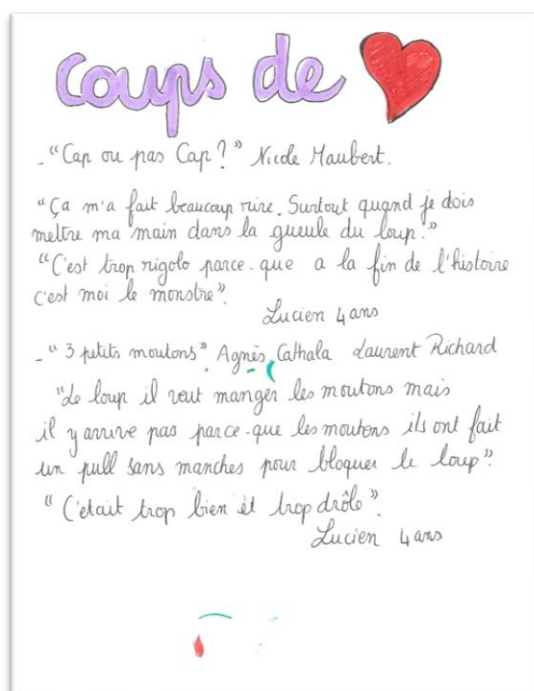 coups de
- "Cap ou pas Cap ?" Nicole Maubert.
"Ça m'a fait beaucoup rire. Surtout quand je dois
mettre ma main dans la gueule du loup."
"C'est trop rigolo parce-que a la fin de l'histoire
c'est moi le monstre".
Lucien 4 ans
- "3 petits moutons" Agnès Cathala Laurent Richard
"Le loup il veut manger les moutons mais
il y arrive pas parce-que les moutons ils ont fait
un pull sans manches pour bloquer le loup".
"C'etait trop bien et trop drôle".
Lucien 4 ans